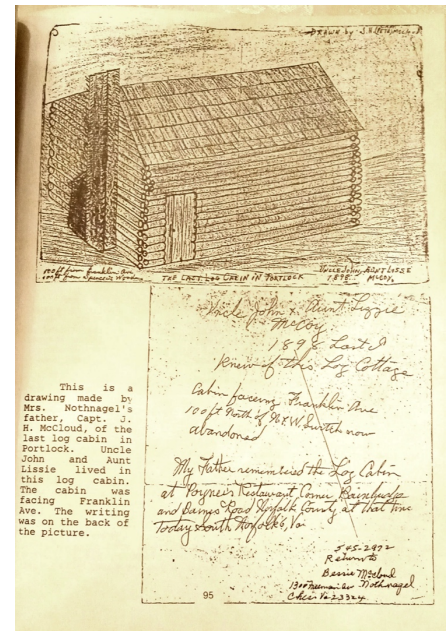 DRAWN by J.H.
100 ft from Franklin Ave
100 ft from Spence's
THE LAST LOG CABIN IN PORTLOCK
UNCLE JOHN, AUNT LISSIE
1898. McCOY.
Uncle John & Aunt Lizzie
McCoy
1898 Last I
Knew of this Log Cottage
Cabin facing Franklin Ave.
100 ft North of N&W Switch now
abandoned
My Father remembered the Log Cabin
at Poyner's Restaurant Corner Bainbridge
and Barnes Road Norfolk County at that time
Today South Norfolk, Va.
545-2972
Return to
Bessie McCloud
Nothnagel
Ches. Va 23324
This is a
drawing made by
Mrs. Nothnagel's
father, Capt. J.
H. McCloud, of the
last log cabin in
Portlock. Uncle
John and Aunt
Lissie lived in
this log cabin.
The cabin was
facing Franklin
Ave. The writing
was on the back of
the picture.
95